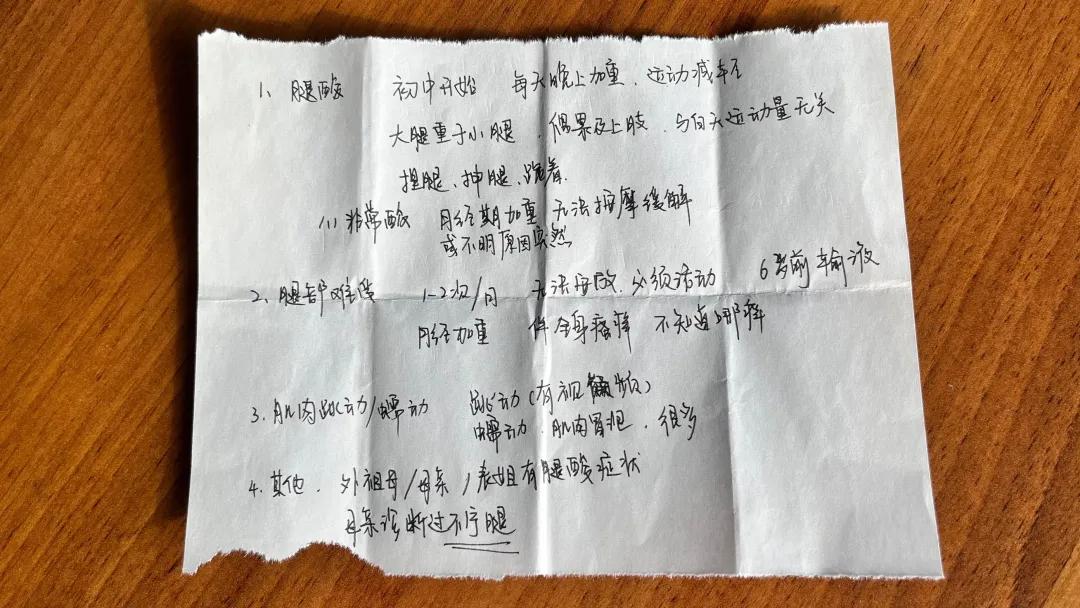 1、腿酸 初中开始 每天晚上加重、运动减轻
大腿重于小腿、偶累及上肢、与白天运动量无关
捏腿、抻腿、跪着.
(1) 非常酸 月经期加重 无法按摩缓解
或不明原因突然
2、腿部难受 1-2次/月 无法安放、必须活动 6岁前输液
月经加重 伴全身瘙痒 不知道哪痒
3.肌肉跳动/蠕动 跳动(有视频)
蠕动、肌肉冒泡、很多
4.其他、外祖母/母亲/表姐有腿酸症状
母亲诊断过不宁腿